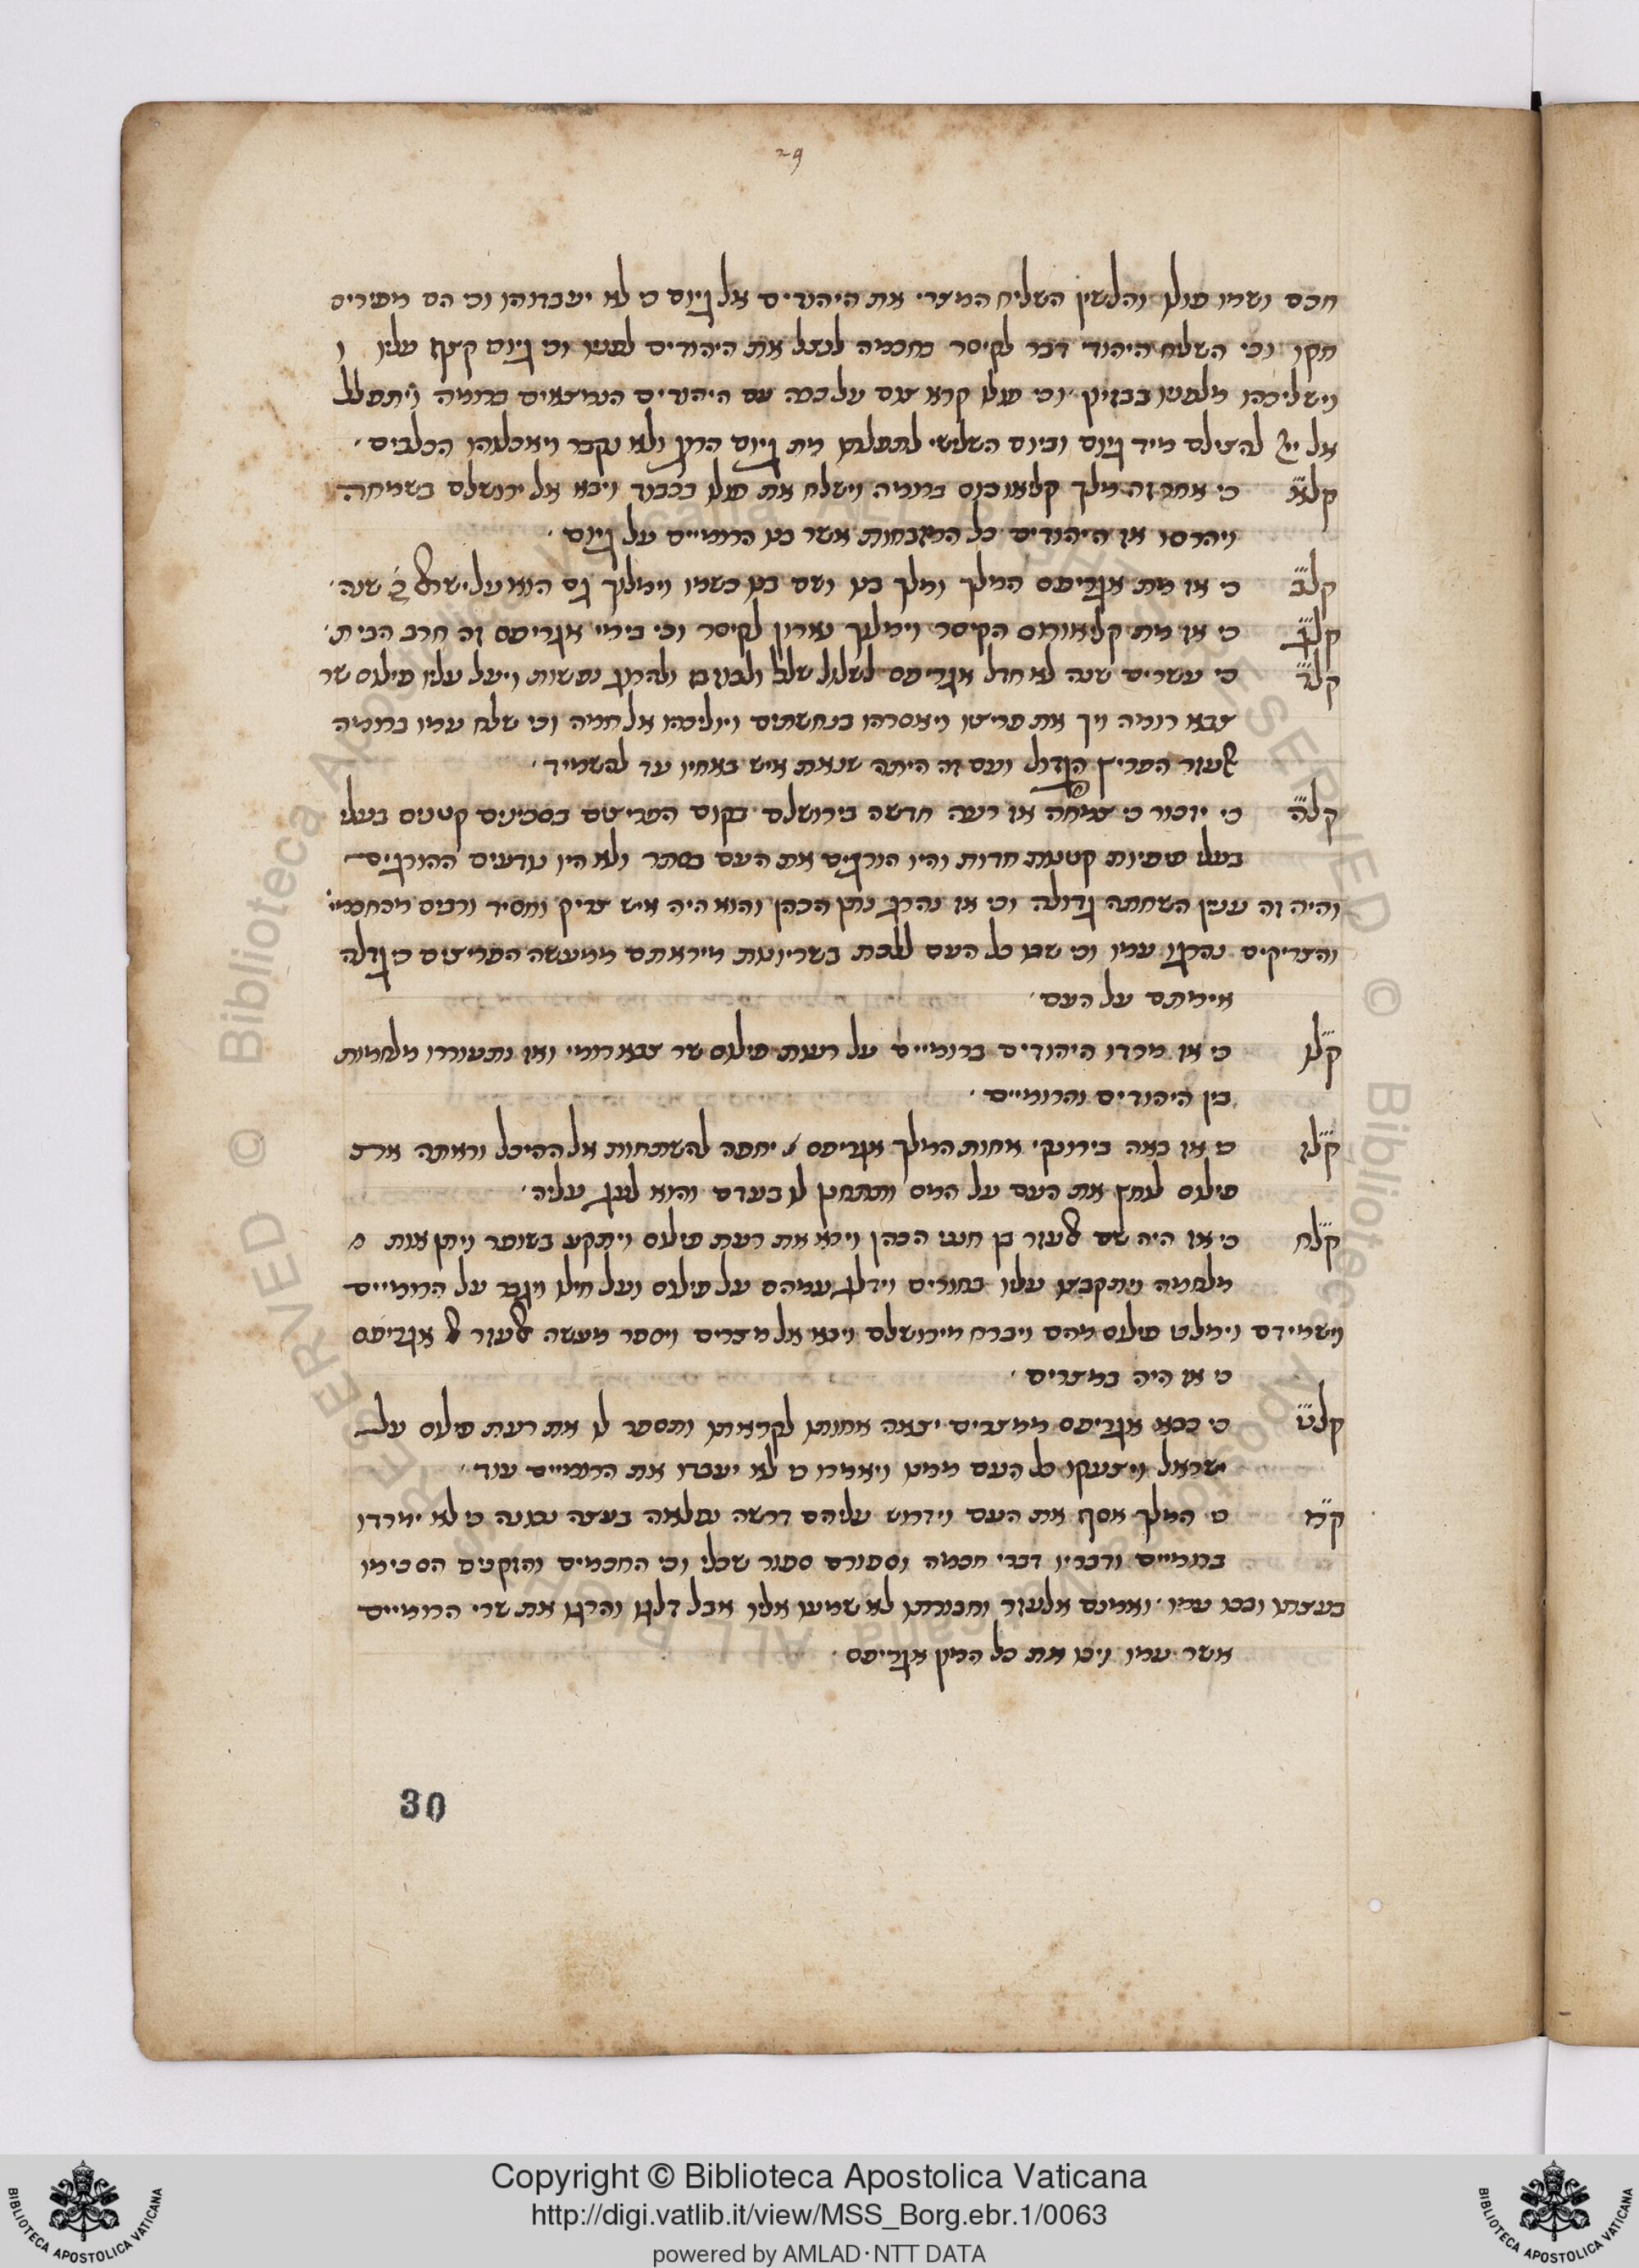 29
חכם ושמו פולן והלשין השליח המצרי את היהודים אל גיוס כי לא יעבדוהו וכי הם מפירים
חקו וכי השליח היהודי דבר לקיסר בחכמה להציל את היהודים לפניו וכי גיוס קצף עליו ו
וישליכהו מלפניו בבזיון וכי פולן קרא צום על ככה עם היהודים הנמצאים ברומה ויתפלל
אל ייי להצילם מיד גיוס וביום השלישי לתפלתו מת גיוס הרוג ולא נקבר ויאכלוהו הכלבים
קלא כי אחר זה מלך קלאודיוס ברומה וישלח את פולן בכבוד ויבא אל ירושלם בשמחה
ויהרסו אז היהודים כל המזבחות אשר בנו הרומיים על גיוס
קלב כי אז מת אגריפס המלך ומלך בנו ושם בנו כשמו וימלוך גם הוא על ישראל כ שנה
קלג כי אז מת קלאודיוס הקיסר וימלוך נארון לקיסר וכי בימי אגריפס זה חרב הבית
קלד כי עשרים שנה לא חדל אגריפס לשלול שלל ולבוז בז ולהרוג נפשות ויעל עליו פילוס שר
צבא רומה ויך את פריצו ויאסרהו בנחשתים ויוליכהו אל רומה וכי שלח עמו ברומה
אלעזר הפריץ הגדול ועם זה היתה שנאת איש באחיו עד להשמיד
קלה כי יזכור כי צמחה אז רעה חדשה בירושלם בקום הפריצים בסכינים קטנים בעלי
בעלי פיפיות קטנות חדות והיו הורגים את העם בסתר ולא היו נודעים ההורגים
והיה זה ענין השחתה גדולה וכי אז נהרג נתן הכהן והוא היה איש צדיק וחסיד ורבים מהחכמי
והצדיקים נהרגו עמו וכי שבו כל העם ללכת בשריונות מיראתם ממעשה הפריצים כי גדלה
אימתם על העם
קלו כי אז מרדו היהודים ברומיים על רעת פילוס שר צבא רומי ואז נתעוררו מלחמות
בין היהודים והרומיים
קלז כי אז באה בירוניקי אחות המלך אגריפס יחפה להשתחות אל ההיכל וראתה את
פילוס לוחץ את העם על המס ותתחנן לו בעדם והוא לעג עליה
קלח כי אז היה שם אלעזר בן חנני הכהן וירא את רעת פילוס ויתקע בשופר ויתן אות
מלחמה ויתקבצו עליו בחורים וידלוג עמהם על פילוס ועל חילו ויגבר על הרומיים
וישמידם וימלט פילוס מהם ויברח מירושלם ויבא אל מצרים ויספר מעשה אלעזר אל אגריפס
כי אז היה במצרים
קלט כי בבא אגריפס ממצרים יצאה אחותו לקראתו ותספר לו את רעת פילוס על
ישראל ויצעקו כל העם ממנו ויאמרו כי לא יעבדו את הרומיים עוד
קמ כי המלך אסף את העם וידרוש עליהם דרשה נפלאה בעצה נכונה כי לא ימרדו
ברומיים ודבריו דברי חכמה וספורם ספור שכלי וכי החכמים והזקנים הסכימו
בעצתו ובכו עמו ואמנם אלעזר וחבורתו לא שמעו אליו אבל דלגו והרגו את שרי הרומיים
אשר עמו ויכו את כל המון אגריפס
30
Copyright © Biblioteca Apostolica Vaticana
http://digi.vatlib.it/view/MSS_Borg.ebr.1/0063
powered by AMLAD·NTT DATA